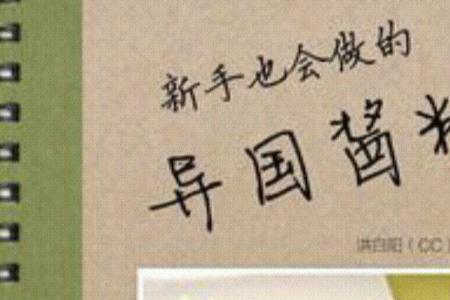 新手也会做的
异国酱
洪白阳（CC）